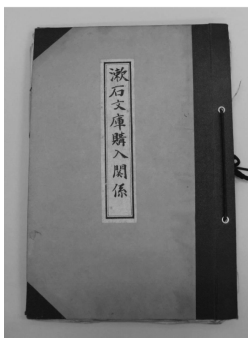 漱石文庫購入関係